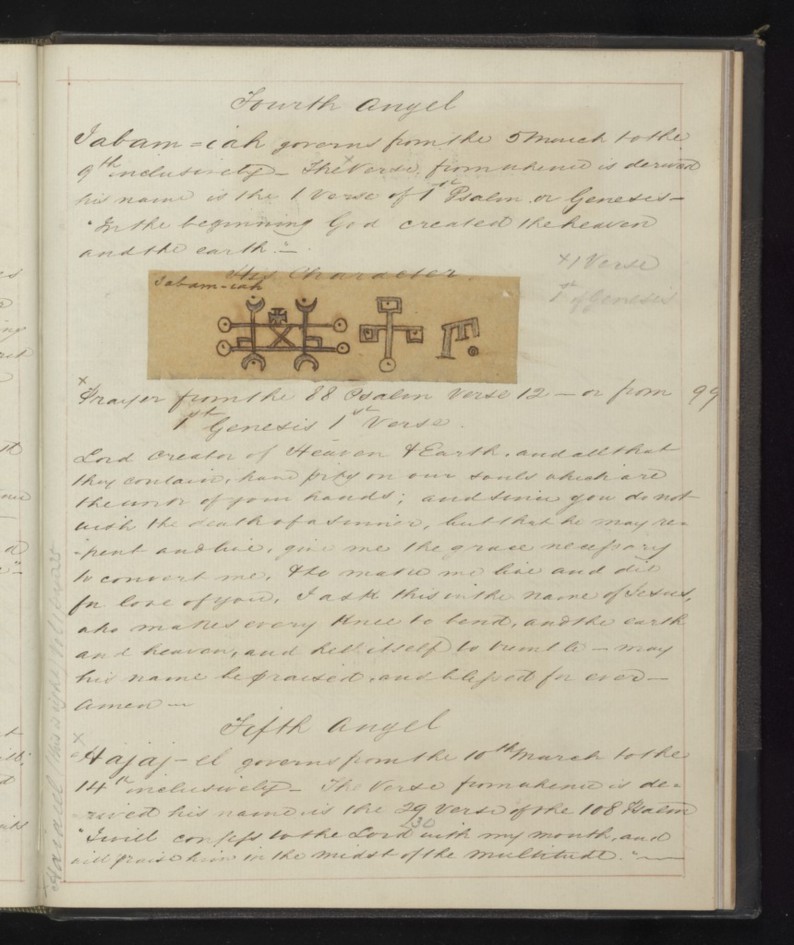 Fourth Angel
Jabam=iah governs from the 5 March to the
9th inclusively_ The Verse, from whence is derived
his name is the 1 Verse of 1st Psalm or Genesis_
"In the beginning God created the heaven
and the earth._
x1 Verse
His Character.
Jabam-iah
1st of Genesis
x
Prayer from the 88 Psalm Verse 12 _ or from 99
1st Genesis 1st Verse.
Lord creator of Heaven & Earth, and all that
they contain, have pity on our souls which are
the work of your hands; and since you do not
wish the death of a sinner, but that he may re=
=pent and live, give me the grace necessary
to convert me, & to make me live and die
for love of you, I ask this in the name of Jesus,
who makes every Knee to bend, and the earth
and heaven, and hell itself to tremble _ may
his name be praised, and blessed for ever_
Amen _
Fifth Angel
x
Hajaj-el governs from the 10th March to the
14th inclusively_ The Verse from whence is de=
=rived his name is the 29 Verse of the 108 Psalm
30
"I will confess to the Lord with my mouth, and
will praise him in the midst of the multitude."_